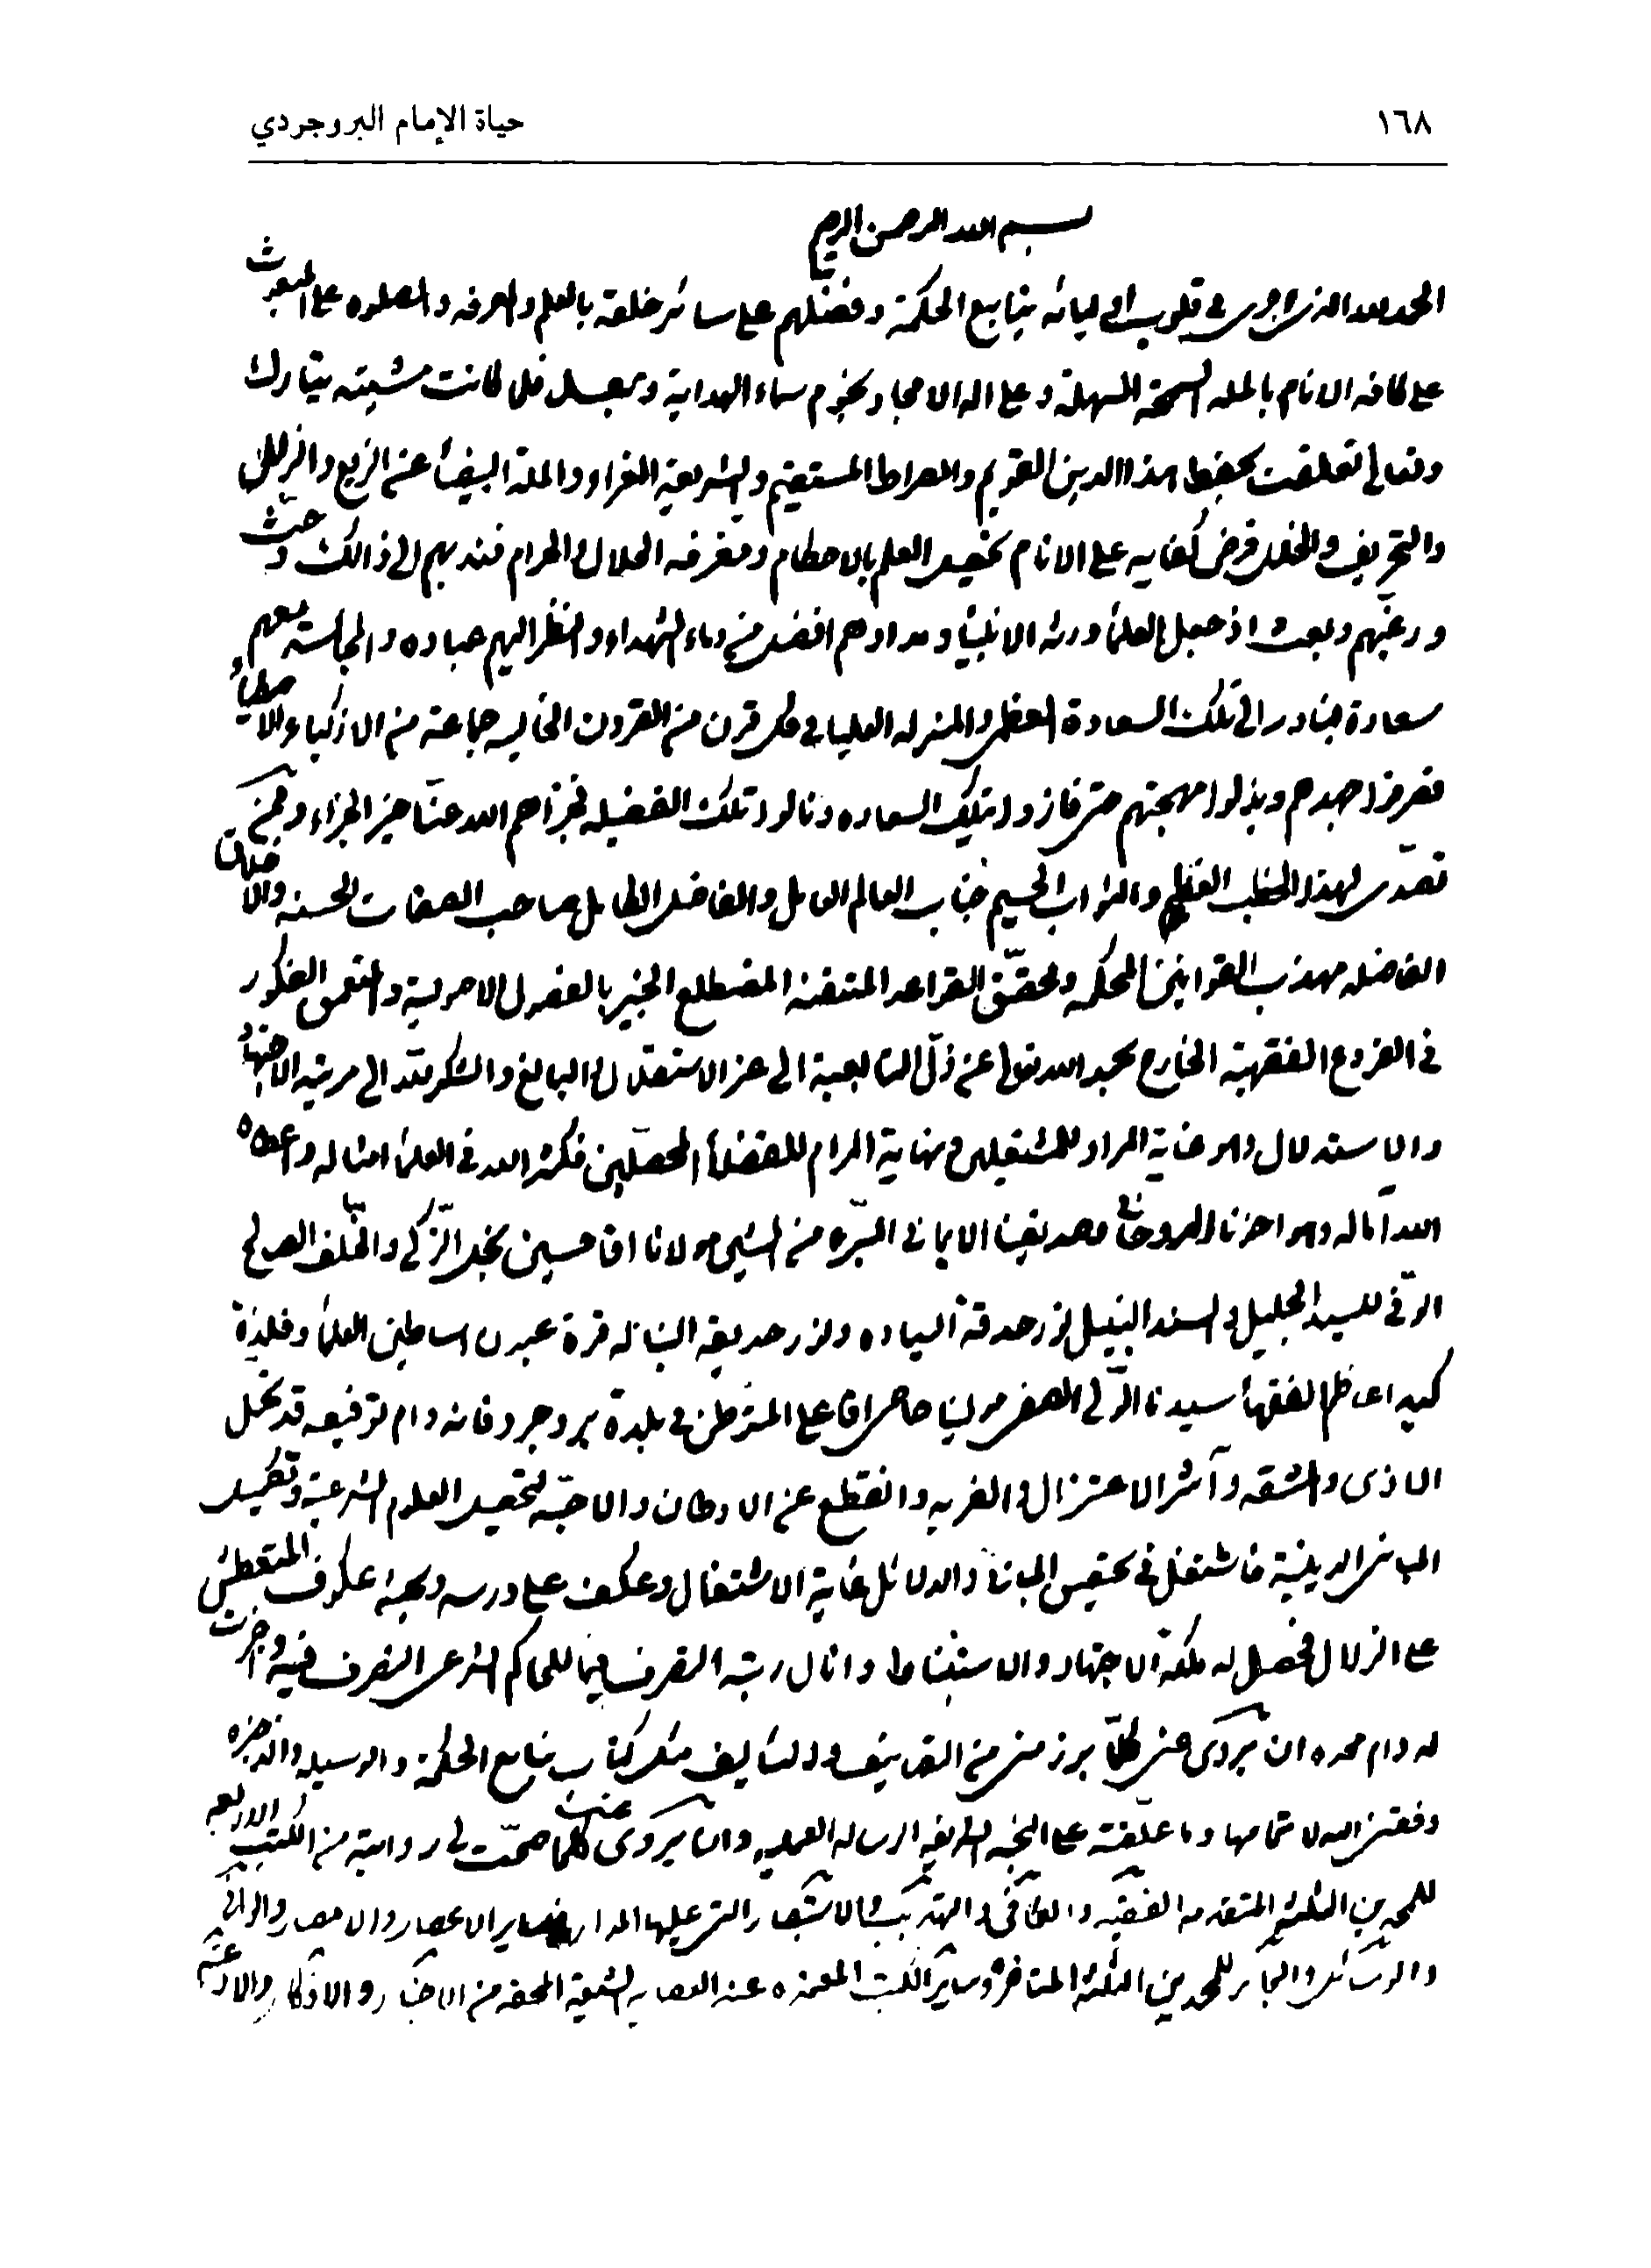 ١٦٨
حياة الإمام البروجردي
بسم الله الرحمن الرحيم
الحمد لله الذى اجرى فى قلوب اوليائه ينابيع الحكمة وفضلهم على سائر خلقه بالعلم والمعرفه والصلوه على المبعوث
على كافه الانام بالمله السمحة السهلة وعلى اله الامجاد نجوم سماء الهداية وبعد فلما كانت مشيته تبارك
وتعالى تعلقت بحفظ هذا الدين القويم والصراط المستقيم والشريعة الغراء والملة البيضاء عن الزيغ والزلل
والتحريف والخلل فرض كفايه على الانام تحصيل العلم بالاحكام ومعرفه الحلال والحرام فندبهم الى ذالك وحثّ
ورغّبهم وبعث اذ جعل العلماء ورثه الانبياء ومدادهم افضل من دماء الشهداء والنظر اليهم عباده والمجالسة معهم
سعادة فبادر الى تلك السعادة العظمى والمنزله العليا فى كل قرن من القرون الخاليه جماعة من الازكياء والاصفياء
فصرفوا جهدهم وبذلوا مهجتهم حتى فازوا بتلك السعاده ونالوا تلك الفضيله فجزاهم الله عنّا خير الجزاء وممن
تصدّى لهذا الخطب العظيم والثواب الجسيم جناب العالم العامل والفاضل الكامل صاحب الصفات الحسنه والاخلاق
الفاضله مهذب القوانين المحكمه ومحقّق القواعد المتقنه المضطلع الخبير بالفصول الاصولية والمتعمق الفكور
فى الفروع الفقهية الخارج بحمد الله تعالى عن ذلّ التابعية الى عز الاستقلال البالغ والشكر لله الى مرتبه الاجتهاد
والاستدلال وهو غاية المراد للمشتغلين ونهاية المرام للفضلاء المحصّلين فكثر الله فى العلماء امثاله واعطاه
الله آماله وهو اخونا الروحانى وصديقنا الايمانى المبرّء من الشين مولانا اقا حسين نجل الزّكى والخلف الصالح
الوفّى للسيد الجليل والسند النبيل نور حدقة السياده ونور حديقه النباله قرة عيون اساطين العلماء وفلذة
كبد اعاظم الفقهاء سيدنا الولّى الصفى مولينا حاجى اقا على المتوطن فى بلدة بروجرد فانه دام توفيقه قد تحمل
الاذى والمشقه وآثر الاعتزال والغربه وانقطع عن الاوطان والاحبّه لتحصيل العلوم الشرعية وتكميل
المبانى الدينية فاشتغل فى تحقيق المبانى والدلائل غاية الاشتغال وعكف على درسه وبحثه عكوف المتعطش
على الزلال فحصل له ملكة الاجتهاد والاستنباط ونال رتبه التصرف فيما للحاكم الشرعى التصرف فيه واجزت
له دام مجده ان يروى عنى كلّما برز منى من التصنيف والتاليف مثل كتاب ينابيع الحكمة والوسيله والذخيره
وفقنى الله لاتمامها وما علّقته على النخبه الشريفه الرساله العمليه وان يروى عنى كلما صحّت لى روايته من الكتب الاربعه
للمحمدين الثلثه المتقدمه الفقيه والكافى والتهذيب والاستبصار التى عليها المدار فى ساير الاعصار والامصار والوافى
والوسائل والبحار للمحمدين الثلثه المتاخره وساير الكتب المعتمده عند العصابه الشيعة المحقه من الاخبار والاذكار والادعيه